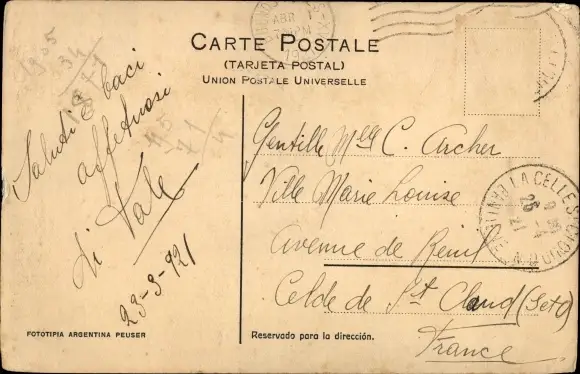 CARTE POSTALE
(TARJETA POSTAL)
UNION POSTALE UNIVERSELLE
Saluti e baci
affettuosi
di Vale
23-3-921
Gentille Mlle C. Archer
Ville Marie Louise
Avenue de
Celde de St Cloud (Set O)
France
FOTOTIPIA ARGENTINA PEUSER
Reservado para la dirección.
LA CELLE ST CLOUD
26